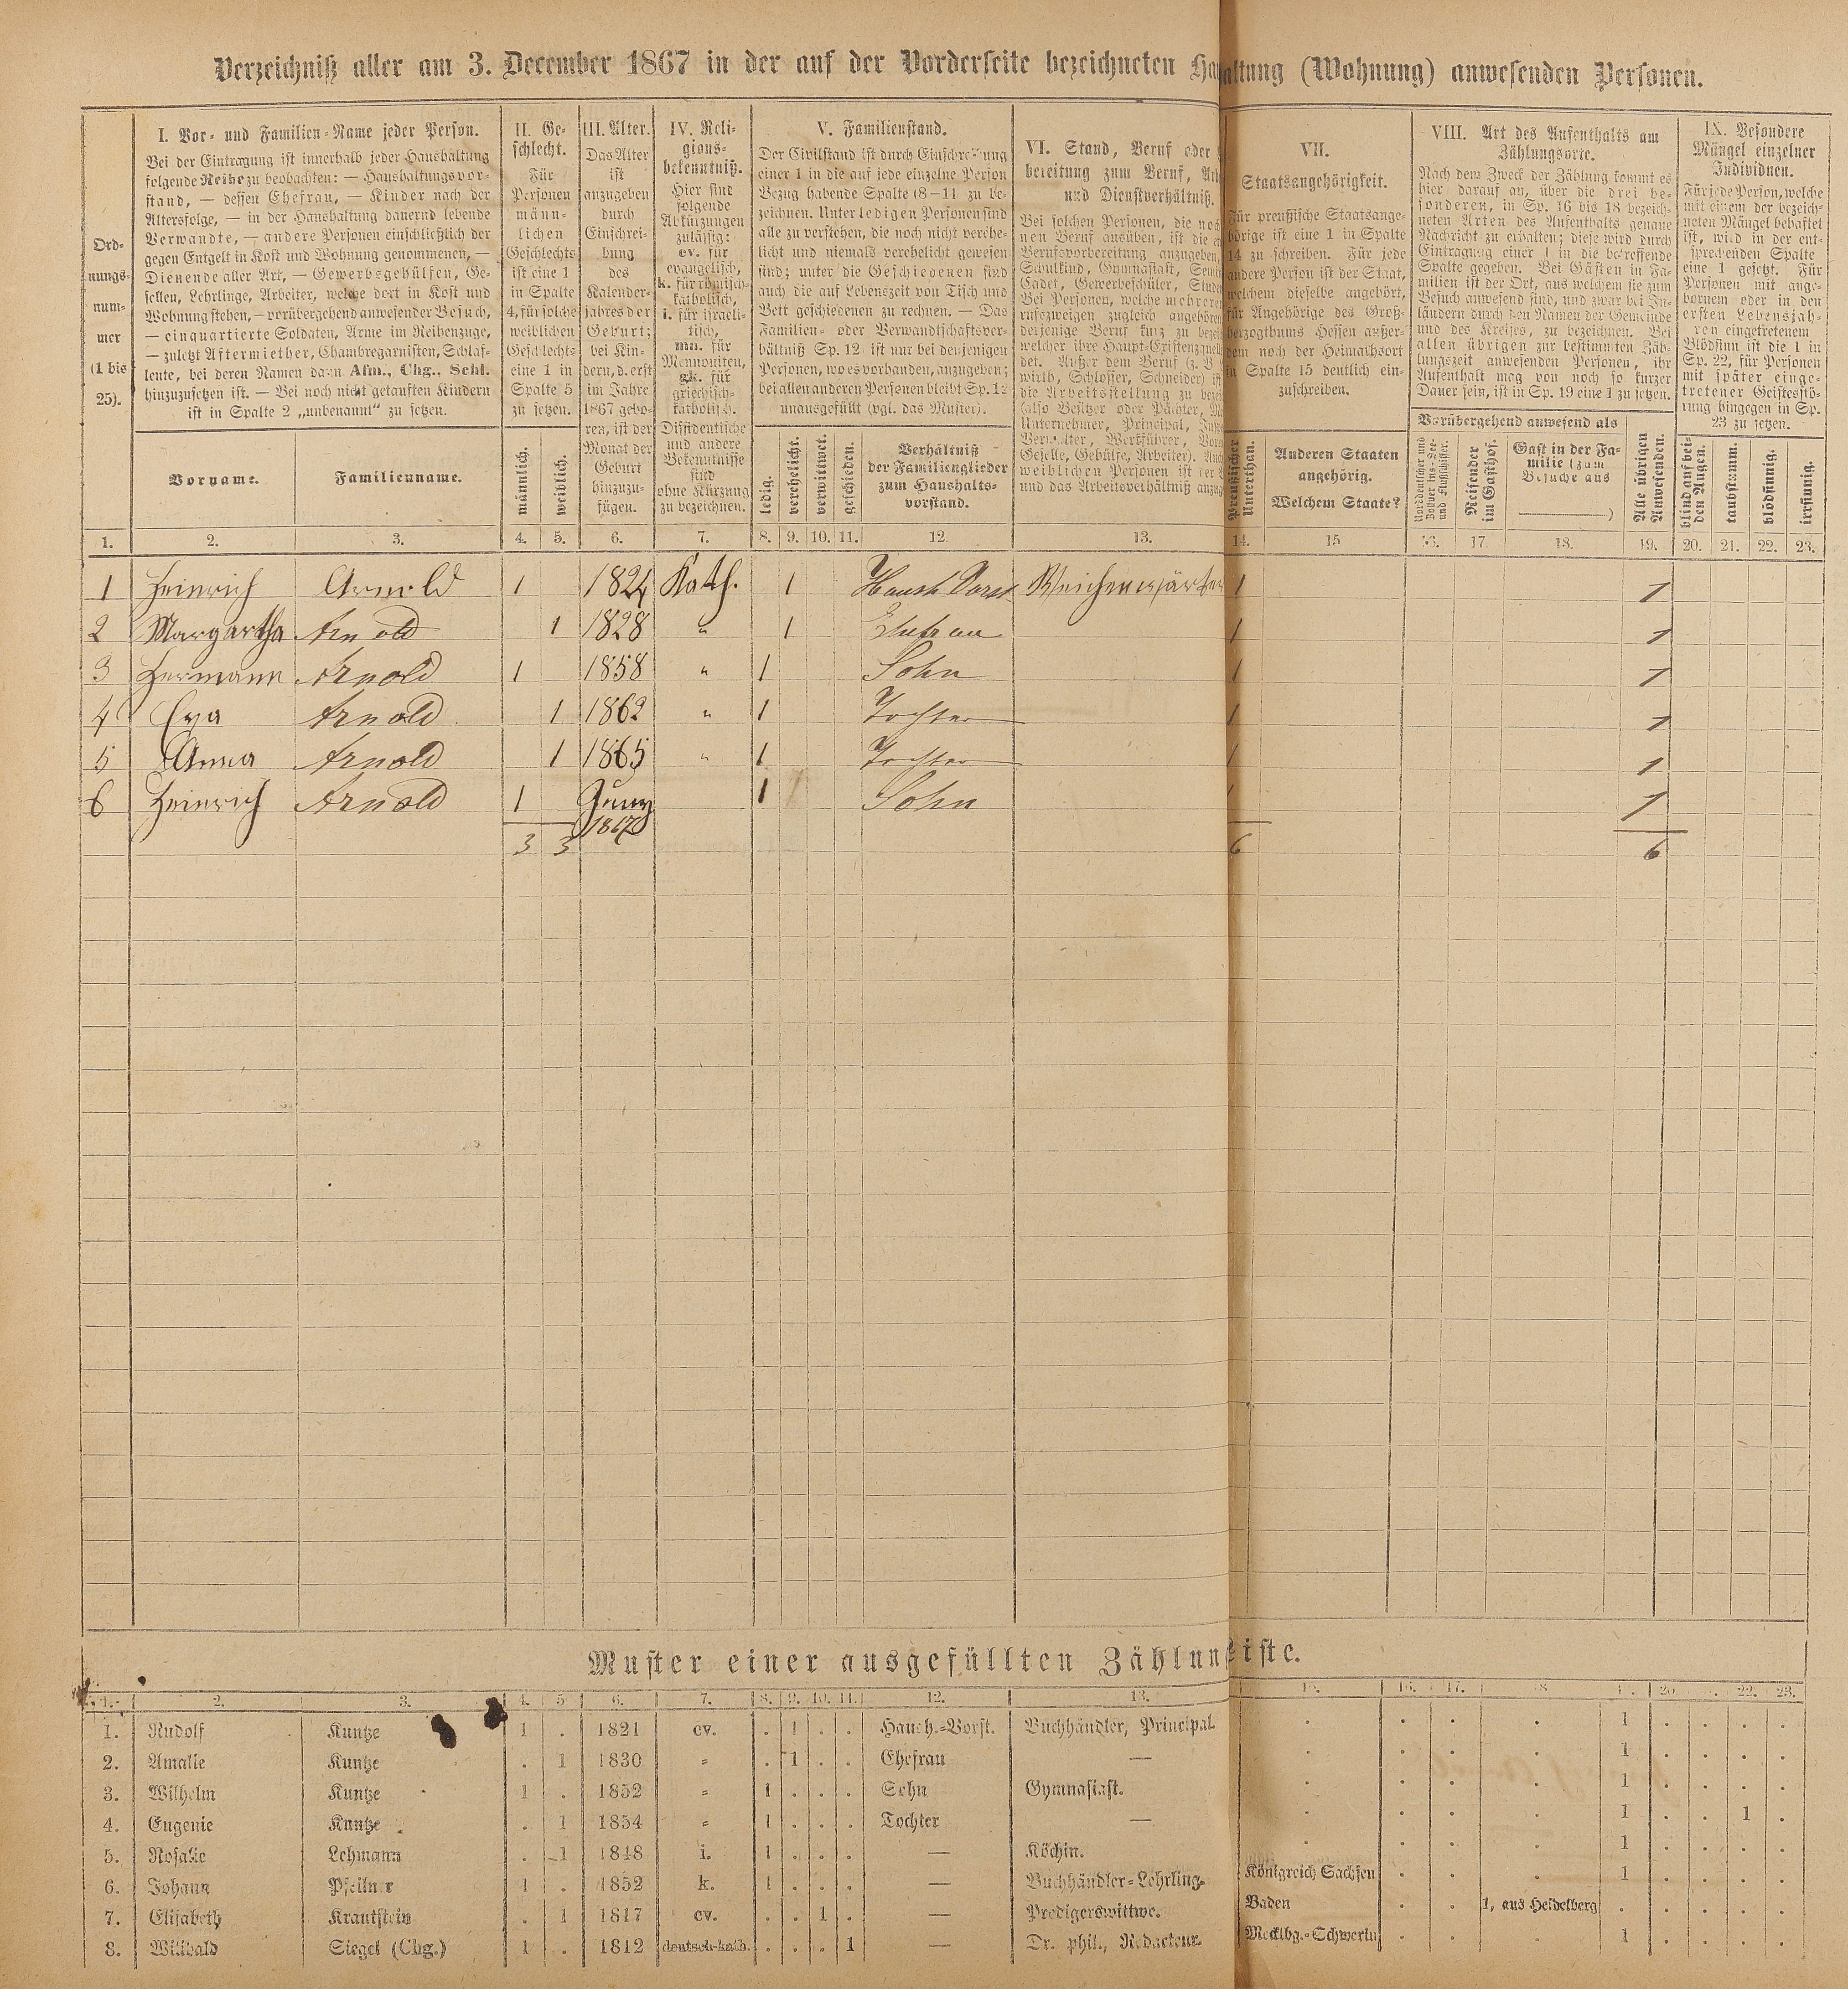 Verzeichniß aller am 3. December 1867 in der auf der Vorderseite bezeichneten Haushaltung (Wohnung) anwesenden Personen.
Ord-
nungs-
num-
mer
(1 bis
25).
I. Vor- und Familien-Name jeder Person.
Bei der Eintragung ist innerhalb jeder Haushaltung
folgende Reihe zu beobachten: — Haushaltungsvor-
stand, — dessen Ehefrau, — Kinder nach der
Altersfolge, — in der Haushaltung dauernd lebende
Verwandte, — andere Personen einschließlich der
gegen Entgelt in Kost und Wohnung genommenen, —
Dienende aller Art, — Gewerbsgehülfen, Ge-
sellen, Lehrlinge, Arbeiter, welche dort in Kost und
Wohnung stehen, — vorübergehend anwesender Besuch,
— einquartierte Soldaten, Arme im Reihenzuge,
— zuletzt Aftermiether, Chambregarnisten, Schlaf-
leute, bei deren Namen dann Afm., Chg., Schl.
hinzuzusetzen ist. — Bei noch nicht getauften Kindern
ist in Spalte 2 „unbenannt“ zu setzen.
Vorname.
Familienname.
II. Ge-
schlecht.
Für
Personen
männ-
lichen
Geschlechts
ist eine 1
in Spalte
4, für solche
weiblichen
Geschlechts
eine 1 in
Spalte 5
zu setzen.
männlich.
weiblich.
III. Alter.
Das Alter
ist
anzugeben
durch
Einschrei-
bung
des
Kalender-
jahres der
Geburt;
bei Kin-
dern, d. erst
im Jahre
1867 gebo-
ren, ist der
Monat der
Geburt
hinzuzu-
fügen.
IV. Reli-
gions-
bekenntniß.
Hier sind
folgende
Abkürzungen
zulässig:
ev. für
evangelisch,
k. für römisch-
katholisch,
i. für israeli-
tisch,
mn. für
Mennoniten,
gk. für
griechisch-
katholisch.
Dissidentische
und andere
Bekenntnisse
sind
ohne Kürzung
zu bezeichnen.
V. Familienstand.
Der Civilstand ist durch Einschreibung
einer 1 in die auf jede einzelne Person
Bezug habende Spalte (8–11) zu be-
zeichnen. Unter ledigen Personen sind
alle zu verstehen, die noch nicht verehe-
licht und niemals verehelicht gewesen
sind; unter die Geschiedenen sind
auch die auf Lebenszeit von Tisch und
Bett geschiedenen zu rechnen. — Das
Familien- oder Verwandtschaftsver-
hältniß Sp. 12 ist nur bei denjenigen
Personen, wo es vorhanden, anzugeben;
bei allen anderen Personen bleibt Sp. 12
unausgefüllt (vgl. das Muster).
ledig.
verehelicht.
verwittwet.
geschieden.
Verhältniß
der Familienglieder
zum Haushalts-
vorstand.
VI. Stand, Beruf oder
bereitung zum Beruf,
und Dienstverhältniß.
Bei solchen Personen, die noch
nen Beruf ausüben, ist die
Berufsvorbereitung anzugeben,
Schulkind, Gymnasiast,
Cadet, Gewerbeschüler,
Bei Personen, welche mehrere
rufszweigen zugleich angehören
derjenige Beruf kurz zu
welcher ihre Haupt-Existenzquelle
det. Außer dem Beruf (z. B.
wirth, Schlosser, Schneider) ist
die Arbeitsstellung zu
(also Besitzer oder Pächter,
Unternehmer, Principal,
Verwalter, Werkführer,
Geselle, Gehülfe, Arbeiter).
weiblichen Personen ist der
und das Arbeitsverhältniß
VII.
Staatsangehörigkeit.
Für preußische Staatsange-
hörige ist eine 1 in Spalte
14 zu schreiben. Für jede
andere Person ist der Staat,
welchem dieselbe angehört,
für Angehörige des Groß-
herzogthums Hessen außer-
dem noch der Heimathsort
in Spalte 15 deutlich ein-
zuschreiben.
Preußischer
Unterthan.
Anderen Staaten
angehörig.
Welchem Staate?
VIII. Art des Aufenthalts am
Zählungsorte.
Nach dem Zweck der Zählung kommt es
hier darauf an, über die drei be-
sonderen, in Sp. 16 bis 18 bezeich-
neten Arten des Aufenthalts genaue
Nachricht zu erhalten; diese wird durch
Eintragung einer 1 in die betreffende
Spalte gegeben. Bei Gästen in Fa-
milien ist der Ort, aus welchem sie zum
Besuch anwesend sind, und zwar bei In-
ländern durch den Namen der Gemeinde
und des Kreises, zu bezeichnen. Bei
allen übrigen zur bestimmten Zäh-
lungszeit anwesenden Personen, ihr
Aufenthalt mag von noch so kurzer
Dauer sein, ist in Sp. 19 eine 1 zu setzen.
Vorübergehend anwesend als
Norddeutscher und
Zollvereins-See-
und Flußschiffer.
Reisender
im Gasthof.
Gast in der Fa-
milie (zum
Besuche aus
)
Alle übrigen
Anwesenden.
IX. Besondere
Mängel einzelner
Individuen.
Für jede Person, welche
mit einem der bezeich-
neten Mängel behaftet
ist, wird in der ent-
sprechenden Spalte
eine 1 gesetzt. Für
Personen mit ange-
bornem oder in den
ersten Lebensjah-
ren eingetretenem
Blödsinn ist die 1 in
Sp. 22, für Personen
mit später einge-
tretener Geistesstö-
rung hingegen in Sp.
23 zu setzen.
blind auf bei-
den Augen.
taubstumm.
blödsinnig.
irrsinnig.
1. 2. 3. 4. 5. 6. 7. 8. 9. 10. 11. 12. 13. 14. 15 16. 17. 18. 19. 20. 21. 22. 23.
1 Heinrich Arnold 1 1824 Kath. 1 Haush Vorst Weichenwärter 1 1
2 Margartha Arnold 1 1828 " 1 Ehefrau 1 1
3 Hermann Arnold 1 1858 " 1 Sohn 1 1
4 Eva Arnold 1 1862 " 1 Tochter 1 1
5 Anna Arnold 1 1865 " 1 Tochter 1 1
6 Heinrich Arnold 1 Juny 1867 1 Sohn 1 1
3 3 6 6
Muster einer ausgefüllten Zählungsliste.
1. 2. 3. 4. 5. 6. 7. 8. 9. 10. 11. 12. 13. 15. 16. 17. 18 20. 22. 23.
1. Rudolf Kuntze 1 . 1821 ev. . 1 . . Haush.-Vorst. Buchhändler, Principal. . . . . 1 . . . .
2. Amalie Kuntze . 1 1830 = . 1 . . Ehefrau — . . . . 1 . . . .
3. Wilhelm Kuntze 1 . 1852 = 1 . . . Sohn Gymnasiast. . . . . 1 . . . .
4. Eugenie Kuntze . 1 1854 = 1 . . . Tochter — . . . . 1 . . 1 .
5. Rosalie Lehmann . 1 1848 i. 1 . . . — Köchin. . . . . 1 . . . .
6. Johann Pfeilner 1 . 1852 k. 1 . . . — Buchhändler-Lehrling. Königreich Sachsen . . . 1 . . . .
7. Elisabeth Krantstein . 1 1817 ev. . . 1 . — Predigerswittwe. Baden . . 1, aus Heidelberg . . . . .
8. Willbald Siegel (Chg.) 1 . 1812 deutsch-kath. . . . 1 — Dr. phil., Redacteur. Mecklbg.-Schwerin . . . 1 . . . .